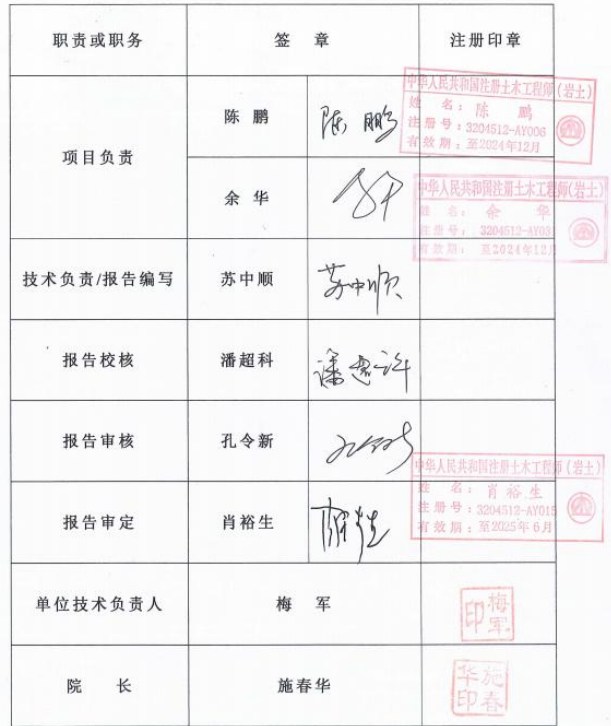 职责或职务 签 章 注册印章
项目负责
陈 鹏 陈鹏
中华人民共和国注册土木工程师(岩土)
姓 名：陈 鹏
注册号：3204512-AY006
有效期：至2024年12月
余 华
中华人民共和国注册土木工程师(岩土)
姓 名：余 华
注册号：3204512-AY03
有效期：至2024年12月
技术负责/报告编写 苏中顺 苏中顺
报告校核 潘超科
报告审核 孔令新
报告审定 肖裕生
中华人民共和国注册土木工程师(岩土)
姓 名：肖裕生
注册号：3204512-AY015
有效期：至2025年6月
单位技术负责人 梅 军
梅军印
院 长 施春华
施春华印